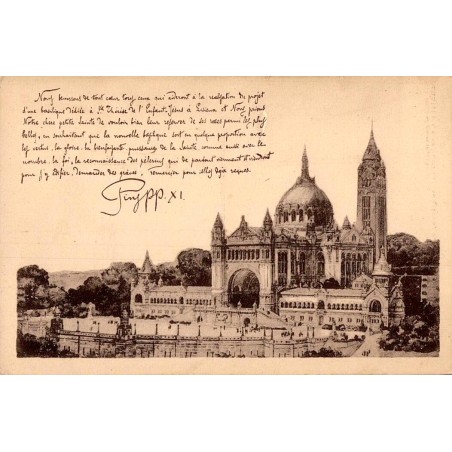 Nous bénissons de tout cœur tous ceux qui aideront à la réalisation du projet
d'une basilique dédiée à Ste Thérèse de l'Enfant-Jésus à Lisieux et Nous prions
Notre chère petite Sainte de vouloir bien leur réserver de ses roses parmi les plus
belles, en souhaitant que la nouvelle basilique soit en quelque proportion avec
les vertus, la gloire, la bienfaisante puissance de la Sainte comme aussi avec le
nombre, la foi, la reconnaissance des pèlerins qui de partout viennent et viendront
pour s'y édifier, demander des grâces, remercier pour celles déjà reçues.
Pius PP. XI.